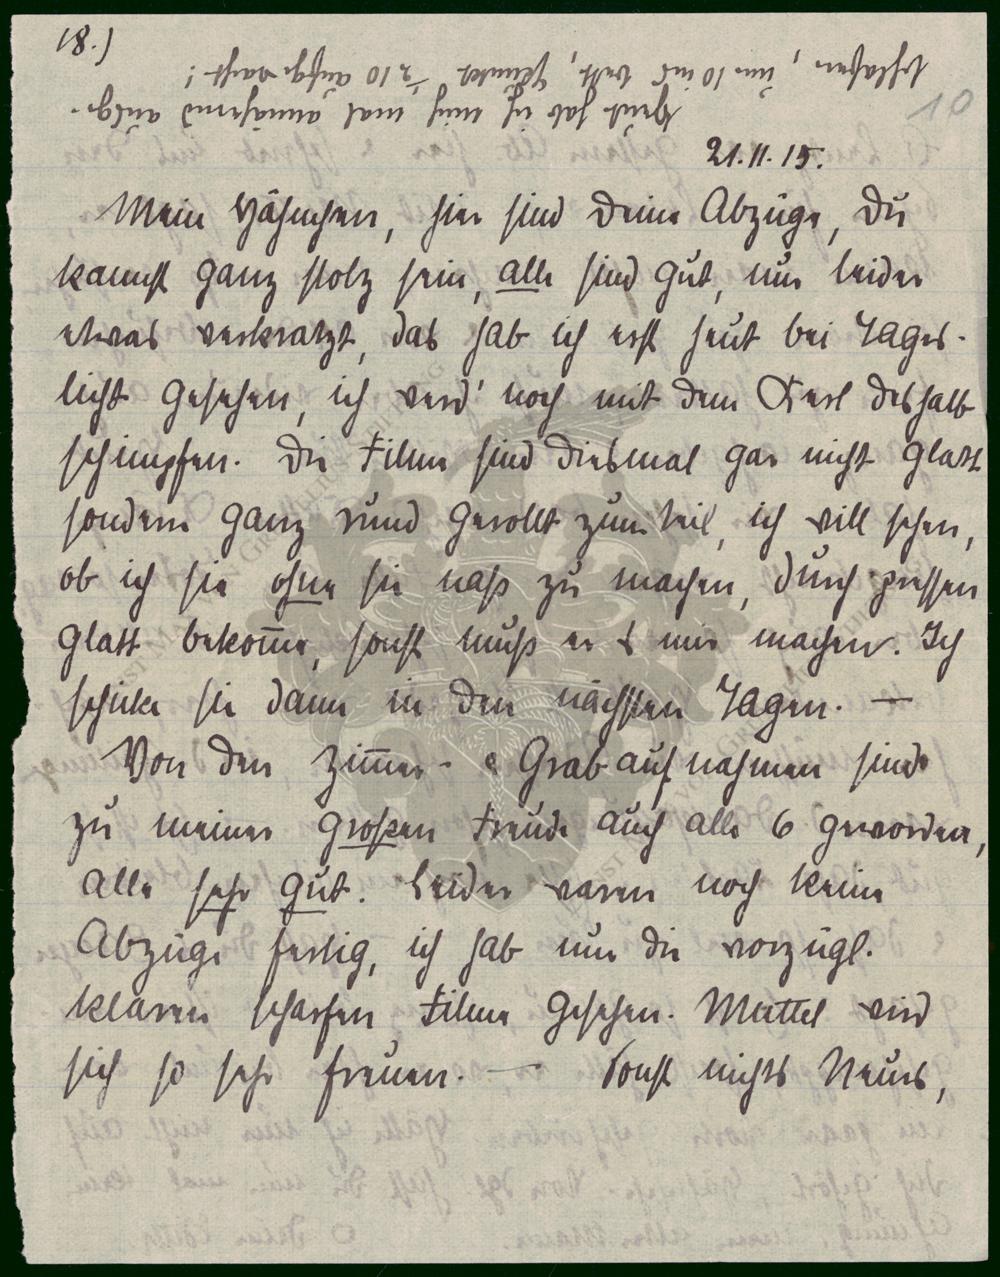 18.)
10
Heut hab ich mich mal annähernd ausge-
schlafen, um 10 ins Bett, gemusst ½ 10 aufgewacht!
21.11.15.
Mein Hähnchen, hier sind Deine Abzüge, Du
kannst ganz stolz sein, alle sind gut, nur leider
etwas verkratzt, das hab ich erst heut bei Tages-
licht gesehen, ich werd' noch mit dem Kerl deshalb
schimpfen. Die Filme sind diesmal gar nicht glatt
sondern ganz rund gerollt zum teil, ich will sehen,
ob ich sie ohne sie naß zu machen, durch pressen
glatt bekom̅e, sonst muß er es mir machen. Ich
schicke sie dann in den nächsten Tagen. —
Von den Zim̅er- & Grabaufnahmen sind
zu meiner großen Freude auch alle 6 geworden,
alle sehr gut. Leider waren noch keine
Abzüge fertig, ich hab nur die vorzügl.
klaren scharfen Filme gesehen. Muttel wird
sich so sehr freuen. — Sonst nichts Neues,